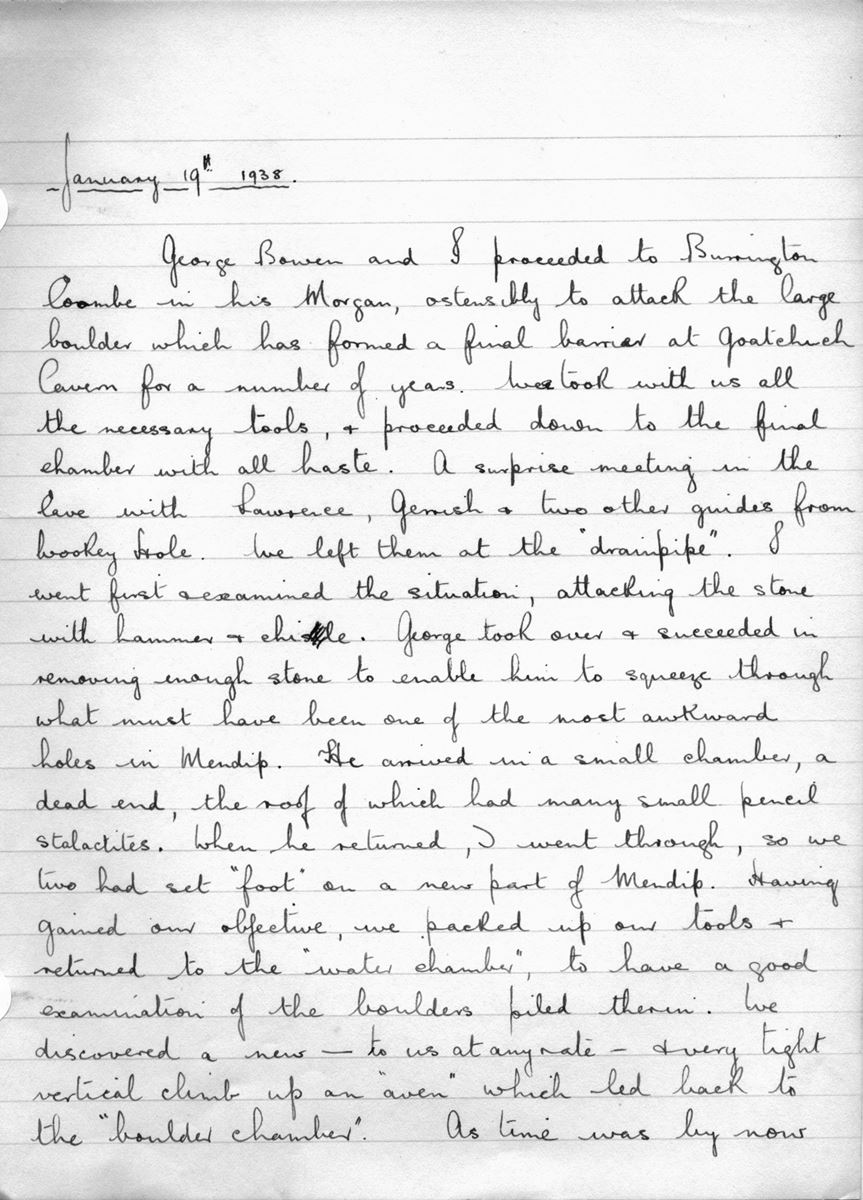 January 19th 1938.
George Bowen and I proceeded to Burrington
Coombe in his Morgan, ostensibly to attack the large
boulder which has formed a final barrier at Goatchurch
Cavern for a number of years. We took with us all
the necessary tools, + proceeded down to the final
chamber with all haste. A surprise meeting in the
Cave with Lawrence, Gerrish + two other guides from
Wookey Hole. We left them at the "drainpipe". I
went first + examined the situation, attacking the stone
with hammer + chisle. George took over + succeeded in
removing enough stone to enable him to squeeze through
what must have been one of the most awkward
holes in Mendip. He arrived in a small chamber, a
dead end, the roof of which had many small pencil
stalactites. When he returned, I went through, so we
two had set "foot" on a new part of Mendip. Having
gained our objective, we packed up our tools +
returned to the "water chamber", to have a good
examination of the boulders piled therin. We
discovered a new — to us at any rate — + very tight
vertical climb up an "aven" which led back to
the "boulder chamber". As time was by now